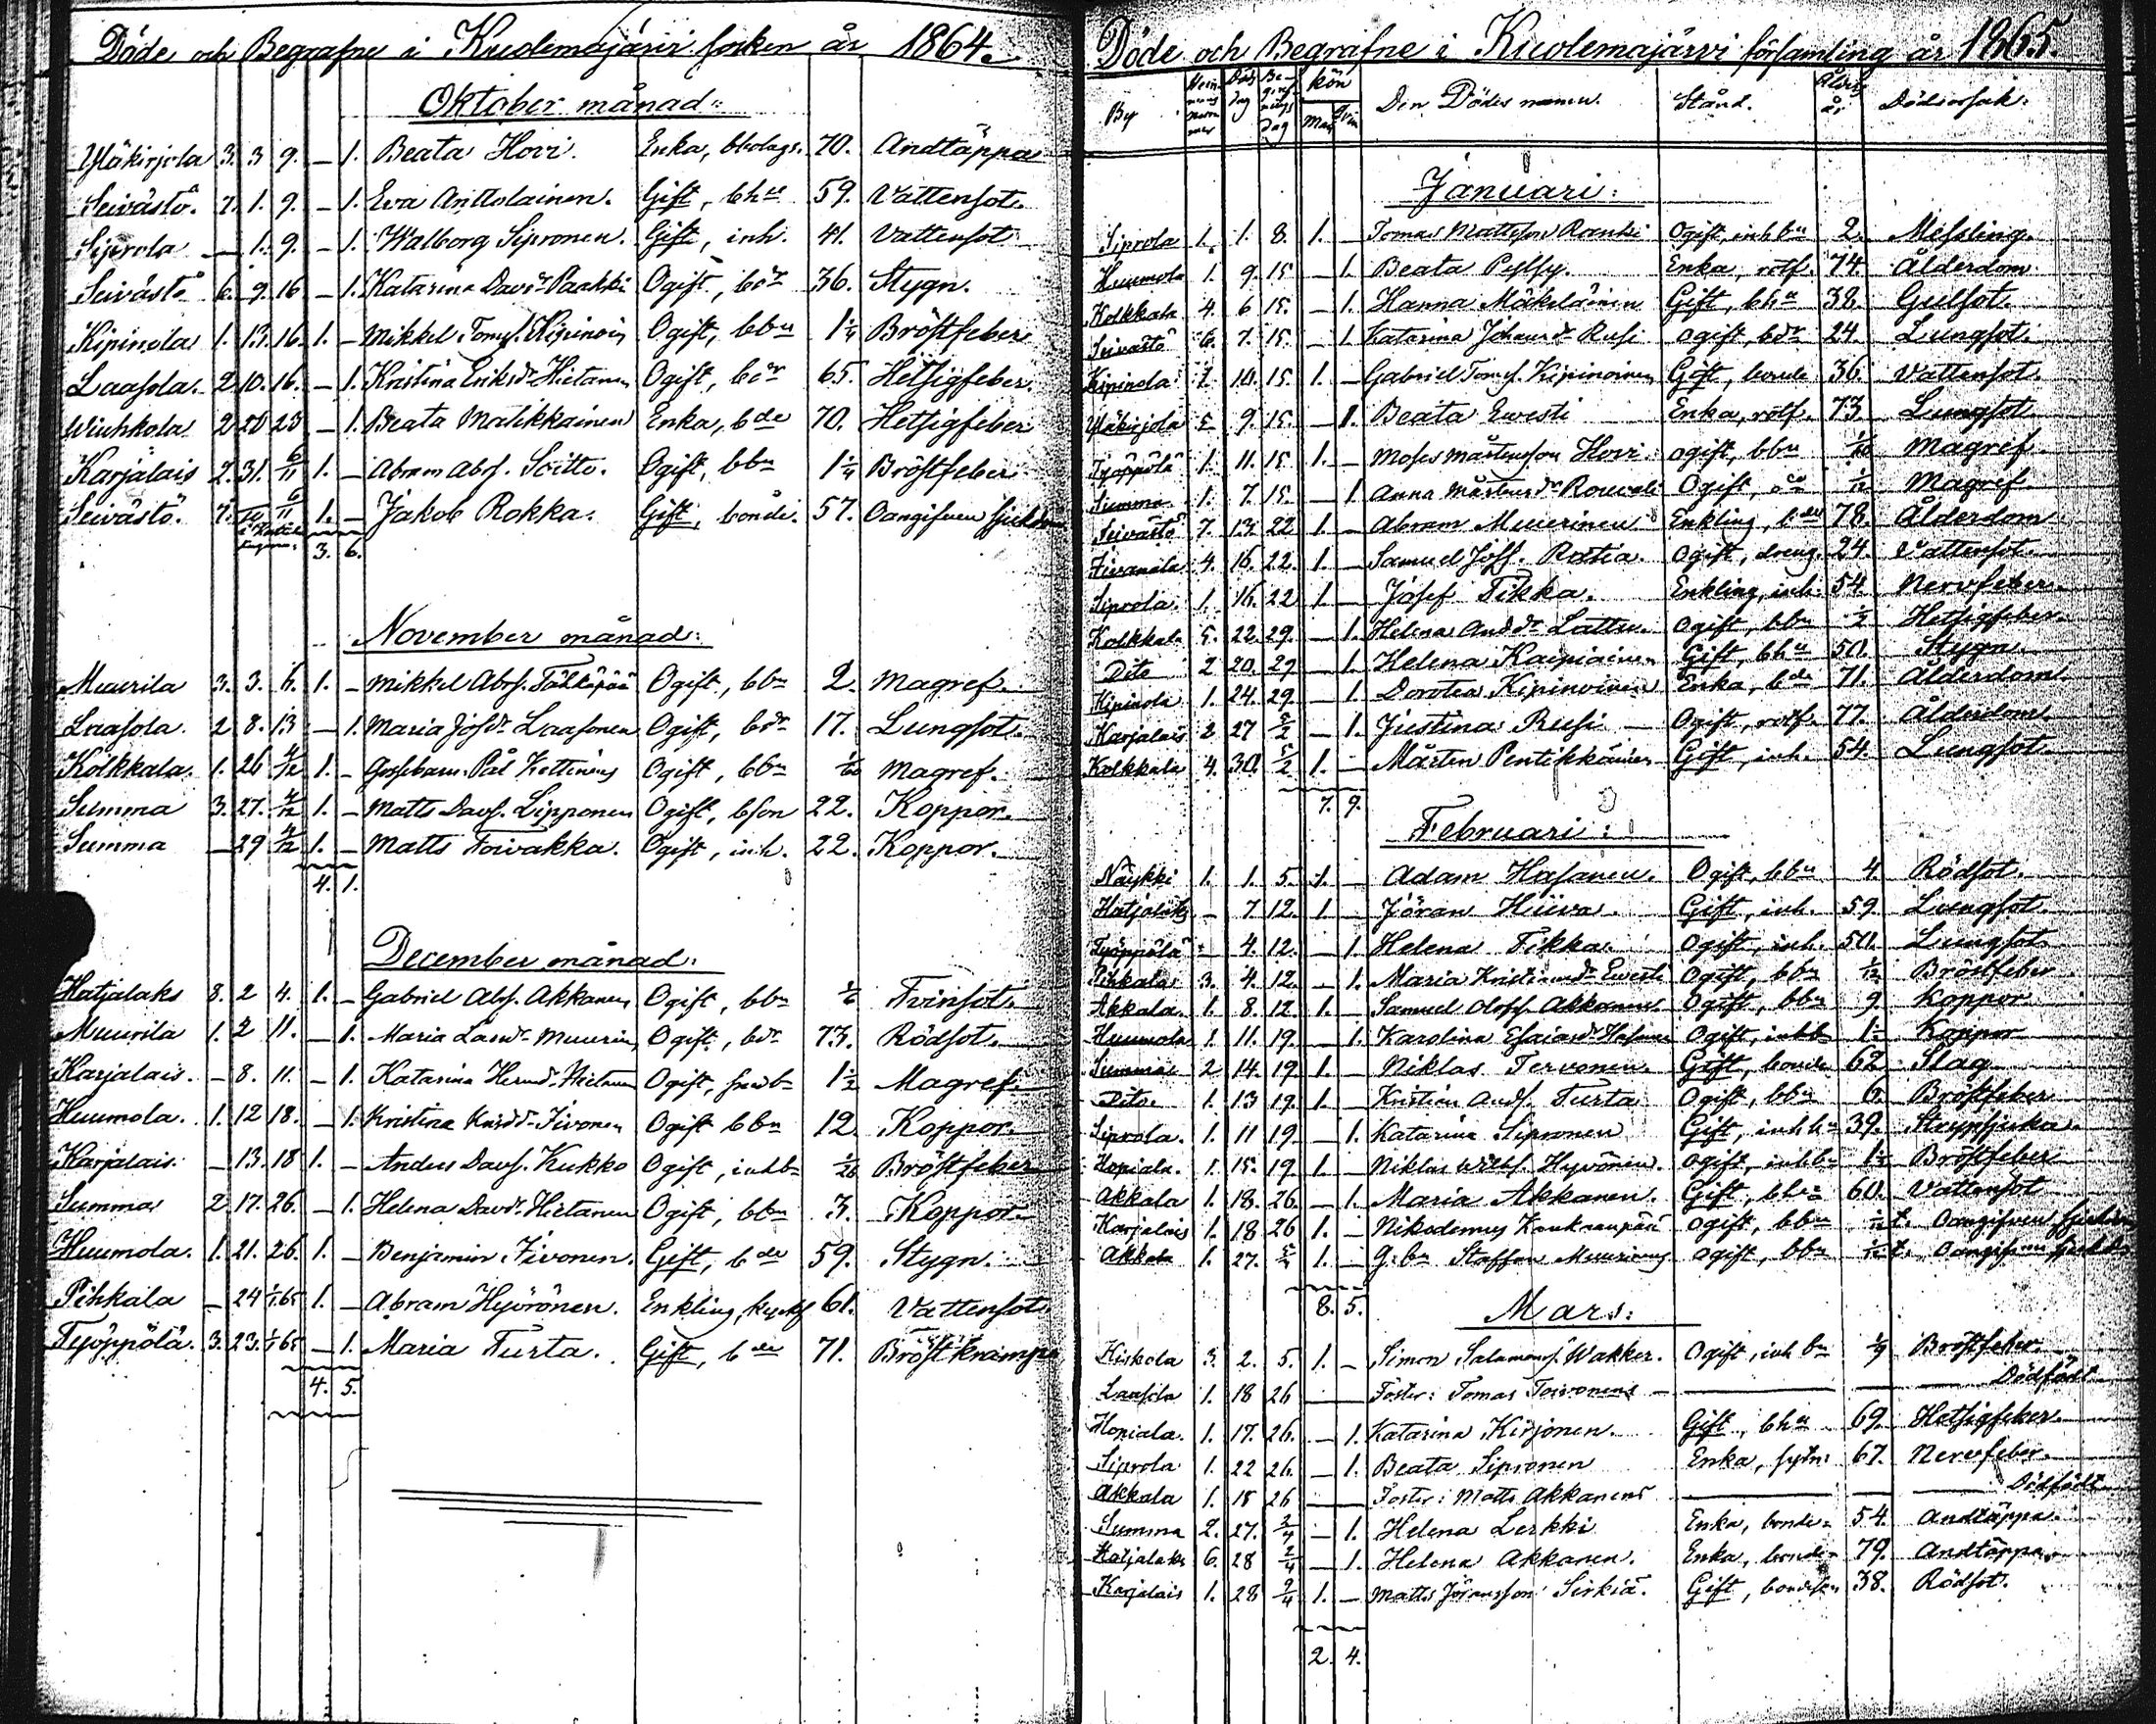 Döde och Begrafne i Kuolemajärvi socken år 1864.
Oktober månad:
Yläkirjola 3. 3 9. — 1. Beata Hovi. Enka, 70. Andtäppa
Seivästö. 7. 1. 9. — 1. Eva Anttolainen. Gift, bhu 59. Vattensot.
Siprola — 1. 9. — 1. Walborg Sipronen. Gift, inh. 41. Vattensot
Seivästö 6. 9. 16 — 1. Katarina Davdr Paakki Ogift, bdr 36. Stygn.
Kipinola 1. 13. 16. 1. — Mikkel Toms. Kipinoin Ogift, bbn 1¼ Bröstfeber
Laasola. 2 10. 16. — 1. Kristina Eriksdr Hietanen Ogift, bdr 65. Hetsigfeber.
Wiuhkola 2 20 23 — 1. Beata Matikkainen Enka, bde 70. Hetsigfeber
Karjalais 2. 31. 6/11 1. — Abram Abrs. Soitto. Ogift, bbn 1¼ Bröstfeber
Seivästö. 7. 6/11 1. — Jakob Rokka. Gift, bonde. 57. Oangifven sjukdom
3. 6.
November månad:
Muurila 3. 3. 6. 1. — Mikkel Abrs. Tähkäpää Ogift, bbn 2. Magref.
Laasola. 2 8. 13 — 1. Maria Josdr Laasonen Ogift, bdr 17. Lungsot.
Kolkkala. 1. 26 4/12 1. — Gossebarn Pål Kettinens Ogift, bbn Magref.
Summa 3. 27. 4/12 1. — Matts Davs. Lipponen Ogift, bson 22. Koppor.
Summa — 29 4/12 1. — Matts Toivakka. Ogift, inh. 22. Koppor.
4. 1.
December månad:
Hatjalaks 8. 2 4. 1. — Gabriel Abrs. Akkanen Ogift, bbn 1/6 Tvinsot.
Muurila 1. 2 11. — 1. Maria Muurin Ogift, bdr 73. Rödsot.
Karjalais. — 8. 11. — 1. Katarina Hietanen Ogift, 1½ Magref
Huumola. 1. 12 18. — 1. Kristina Iivonen Ogift bbn 12 Koppor.
Karjalais. — 13. 18 1. — Anders Davs. Kukko Ogift, inhbn Bröstfeber
Summa 2 17. 26. — 1. Helena Davdr Hietanen Ogift, bbn 3. Koppor
Huumola. 1. 21. 26. 1. — Benjamin Iivonen. Gift, bde 59. Stygn.
Pihkala — 24 1/1.65 1. — Abram Hyvönen. Enkling, 61. Vattensot
Työppölä. 3. 23. 1/1 65 — 1. Maria Turta. Gift, bde 71. Bröstkrampa
4. 5.
Döde och Begrafne i Kuolemajärvi församling år 1865.
By Hemmans nummer Döds dag Begrafnings dag Kön Man Qvin Den Dödes namn. Stånd. Ålder år Dödsorsak.
Januari:
Siprola 1. 1. 8. 1. — Tomas Mattsson Ranki Ogift, inhbn 2. Messling.
Huumola 1. 9. 15 — 1. Beata Enka, rotf. 74. Ålderdom
Kolkkala 4. 6 15. — 1. Hanna Mäkeläinen Gift, bhu 38. Gulsot.
Seivästö 6. 7. 15. — 1 Katarina Johansdr Rusi ogift, bdr 24. Lungsot.
Kipinola 1. 10. 15. 1. — Gabriel Toms. Kipinoinen Gift, bonde 36. Vattensot.
Yläkirjola 5 9. 15. — 1. Beata Ewesti Enka, rotf. 73. Lungsot
Työppölä 1. 11. 15 1. — Moses Mårtensson Hovi ogift, bbn Magref.
Summa 1. 7. 15. — 1 Anna Mårtensdr Rouvali Ogift, do 1/12 Magref.
Seivästö 7. 13. 22 1. — Abram Muurinen Enkling, bde 78. Ålderdom
Iivanala 4. 16. 22. 1. — Samuel Jöss. Ratia. Ogift, dreng. 24. Vattensot.
Siprola. 1. 16. 22 1. — Josef Tikka. Enkling, inh. 54. Nervfeber.
Kolkkala 5. 22. 29. — 1. Helena Anddr Lattu. Ogift, bbn ½ Hetsigfeber.
Dito 2 20. 29 — 1. Helena Kaipiainen Gift, bhu 50. Stygn.
Kipinola 1. 24. 29. — 1. Dorotea Kipinoinen Enka, bde 71. Ålderdom.
Karjalais 2 27 5/2 — 1. Justina Rusi — Ogift, rotf. 77. Ålderdom.
Kolkkala 4. 30. 5/2 1. — Mårten Pentikkäinen Gift, inh. 54. Lungsot.
7. 9.
Februari:
Näykki 1. 1. 5. 1. — Adam Hasanen. Ogift, bbn 4. Rödsot.
Hatjalaks — 7. 12. 1. — Jöran Hiiva. Gift, inh. 59. Lungsot.
Työppölä — 4. 12. — 1. Helena Tikka. Ogift, inh. 50. Lungsot
Pihkala 3. 4. 12. — 1. Maria Ewesti Ogift, bbn 1/12 Bröstfeber
Akkala. 1. 8. 12. 1. — Samuel Akkanen. Ogift, bbn 9 Koppor
Huumola 1 11. 19. — 1. Karolina Esaiasdr Hasanen Ogift, inhb Koppor
Summa 2 14. 19. 1. — Niklas Tervonen. Gift, bonde 62 Slag
Dito. 1. 13 19. 1. — Kristian Ands. Turta Ogift, bbn 6. Bröstfeber
Siprola. 1. 11 19. — 1. Katarina Sipronen Gift, 39.
Hopiala. 1. 15. 19 1. — Niklas Hyvönen. Ogift, inhbn 1½ Bröstfeber
Akkala 1. 18. 26. — 1. Maria Akkanen. Gift, bhu 60. Vattensot
Karjalais 1. 18 26 1. — Nikodemus Kaukanpää Ogift, bbn Oangifven sjukdom
Akkala 1. 27. 1. — G:bn Staffan Muurinens ogift, bbn Oangifven sjukd.
8. 5.
Mars:
Kiskola 3. 2. 5. 1. — Simon Salamons. Wakker. Ogift, inh bn Bröstfeber.
Laasola 1. 18 26 — Foster: Tomas Toivonens — — Dödfödt
Hopiala. 1. 17. 26. — 1. Katarina Kirjonen. Gift, bhu 69. Hetsigfeber
Siprola 1. 22 26. — 1. Beata Sipronen Enka, sytn. 67. Nervfeber.
Akkala 1. 18 26 — Foster: Matts Akkanens — — Dödfödt
Summa 2. 27. 2/4 — 1. Helena Lerkki Enka, bonde 54. Andtäppa.
Hatjalaks 6. 28 2/4 — 1. Helena Akkanen. Enka, bonde 79. Andtäppa.
Karjalais 1. 28 2/4 1. — Matts Jöransson Sirkiä. Gift, bondeson 38. Rödsot.
2. 4.